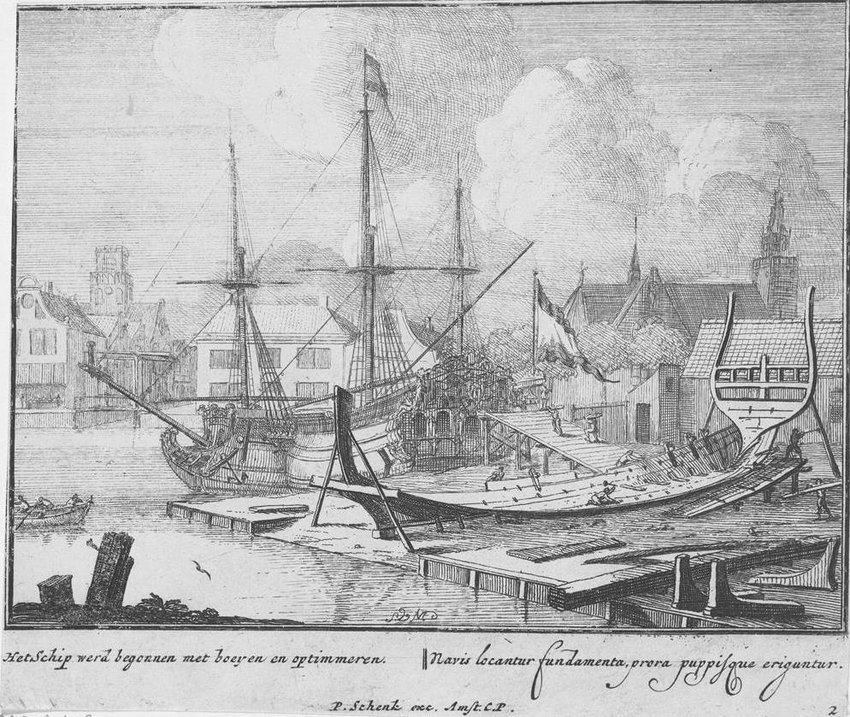 Het Schip werd begonnen met boeyen en optimmeren.
Navis locantur fundamenta, prora puppisque eriguntur.
P. Schenk exc. Amst. C.P.
2